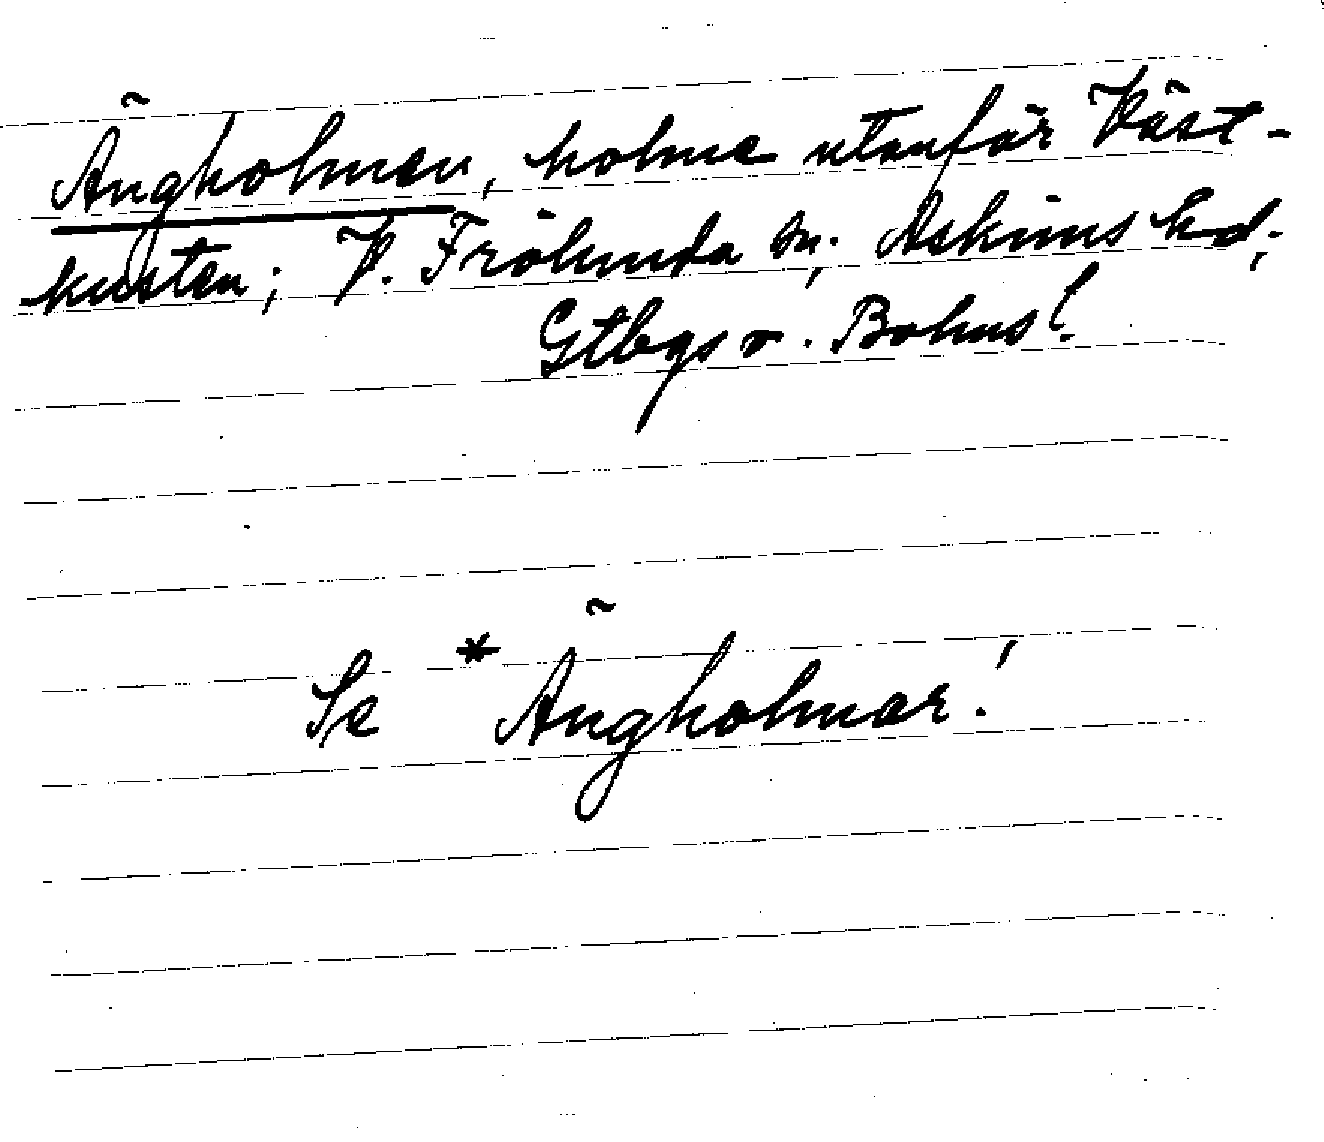 Ängholmen, holme utanför Väst-
kusten; V. Frölunda sn; Askims hd;
Gtbgs o. Bohus l.
Se *Ängholmar!